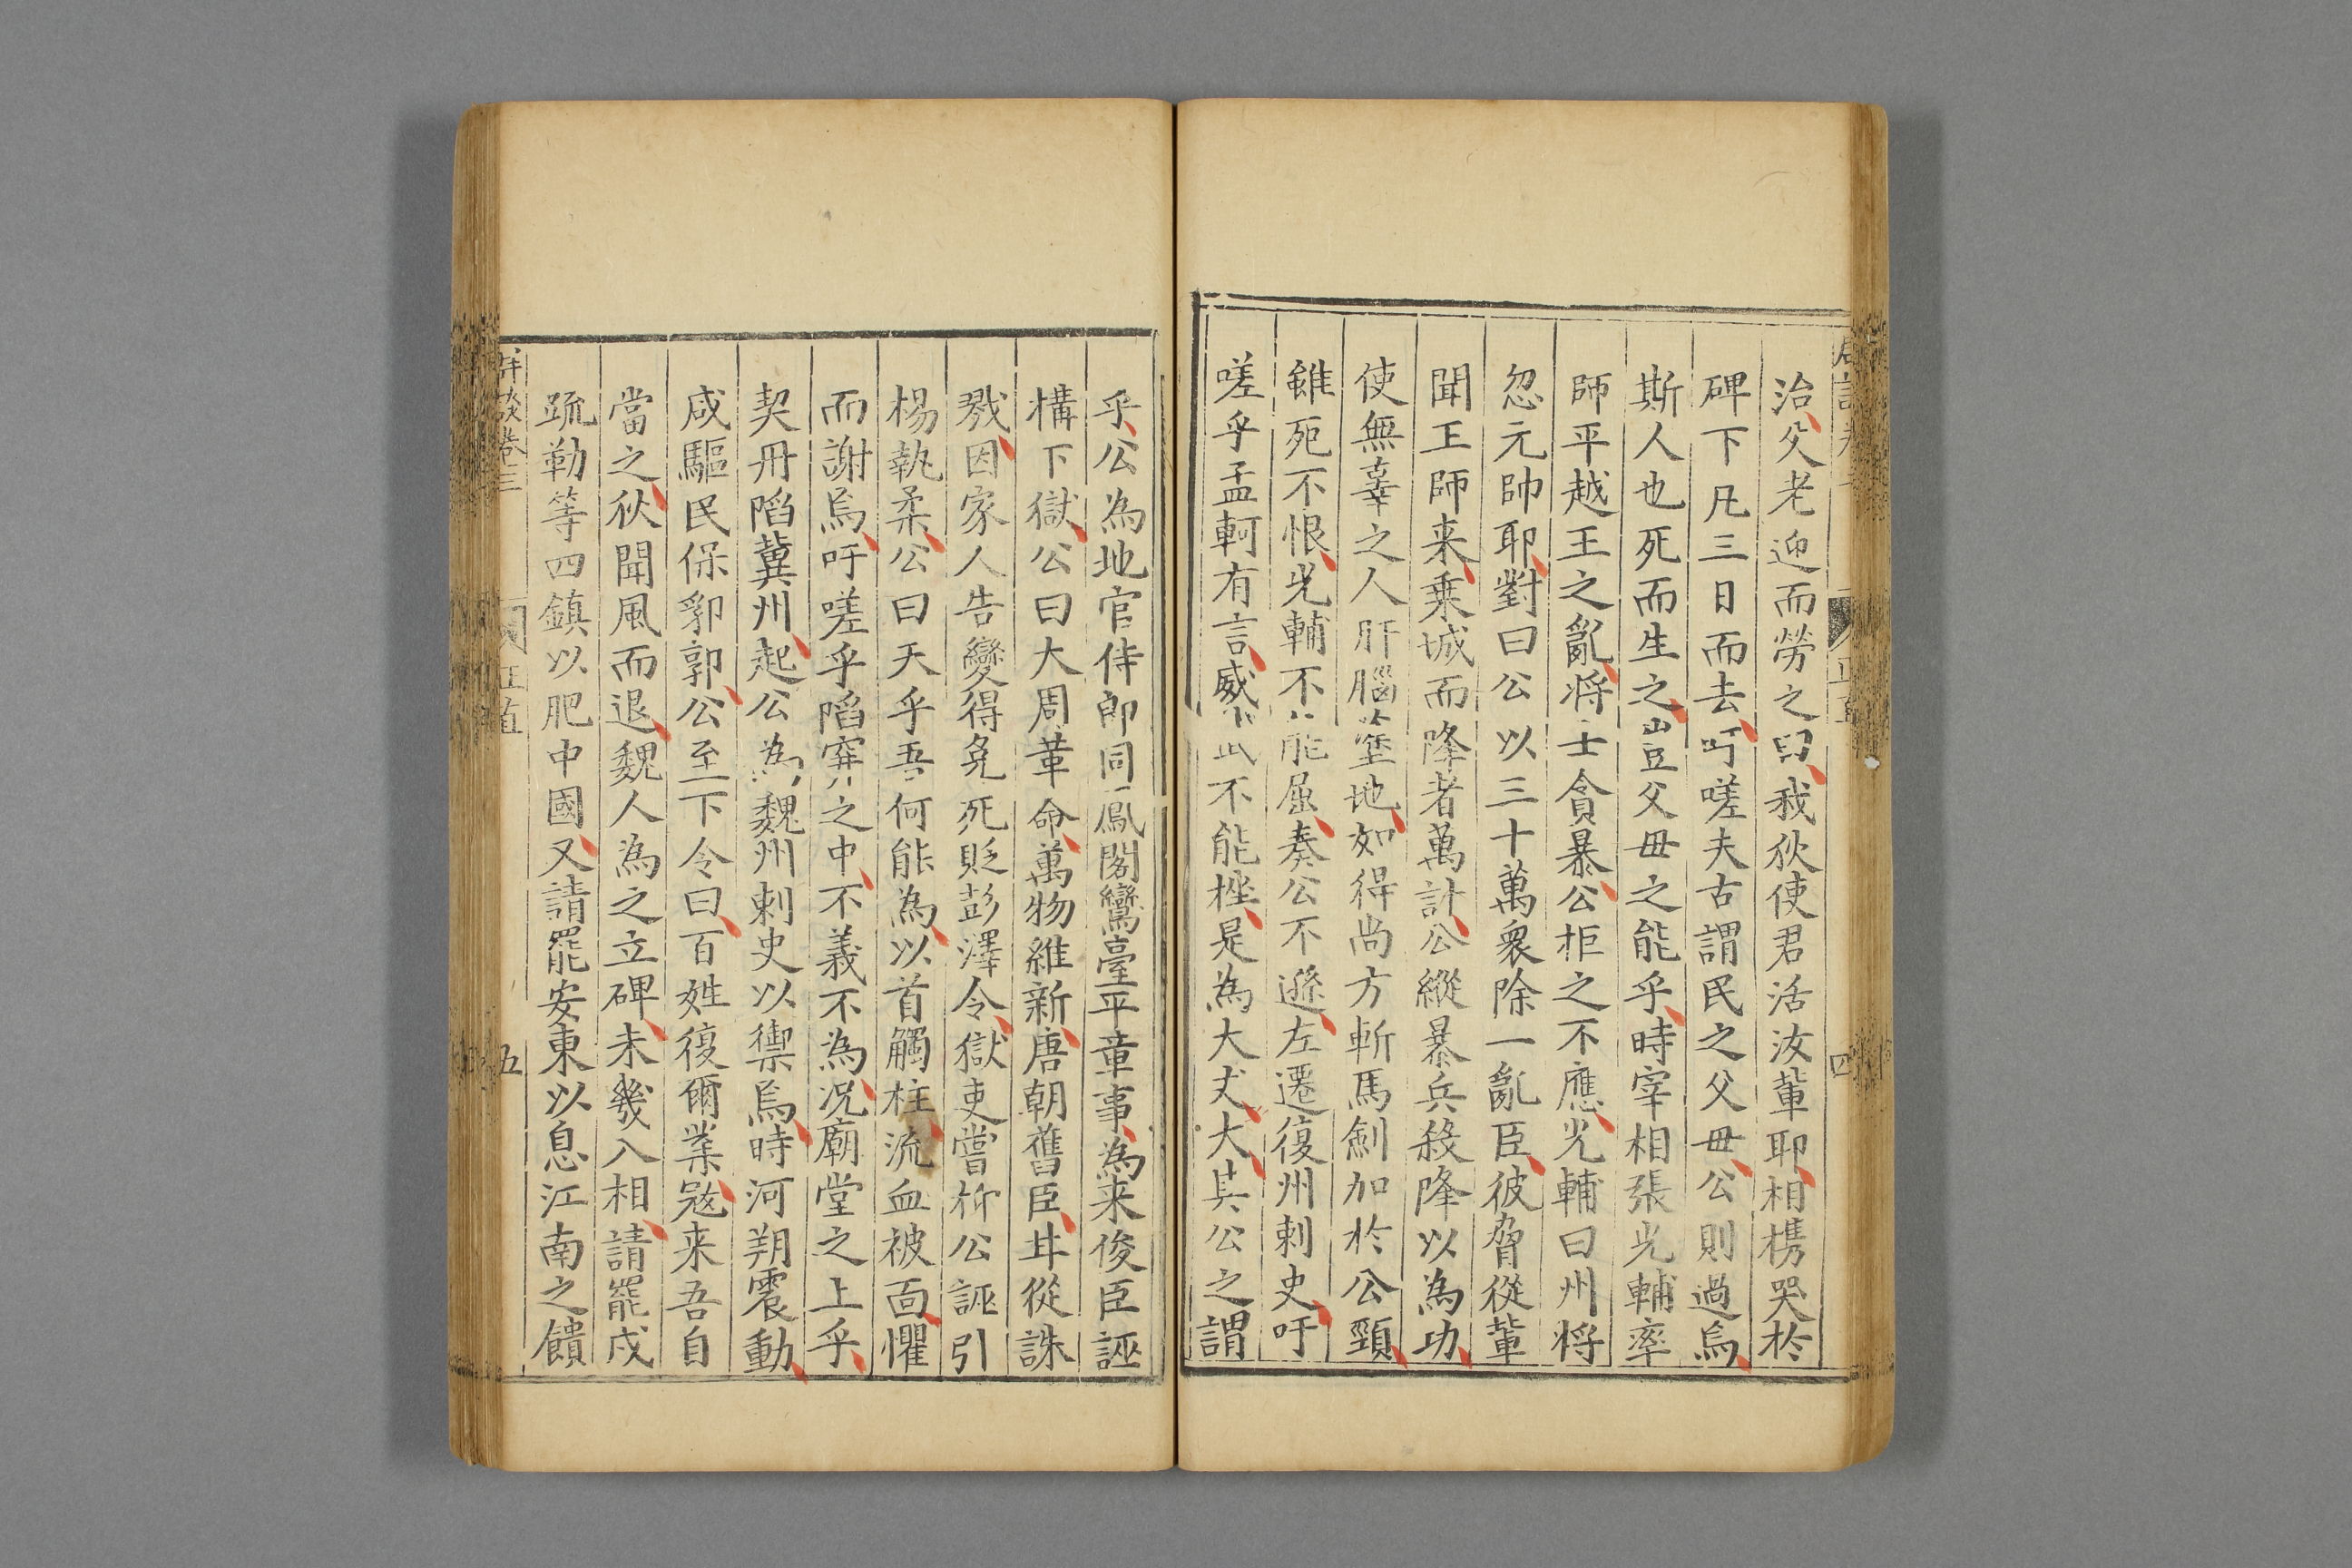 治父老迎而勞之曰我狄使君活汝輩耶相携哭於
碑下凡三日而去吁嗟夫古謂民之父毋公則過焉
斯人也死而生之豈父毋之能乎時宰相張光輔率
師平越王之亂将士貪暴公拒之不應光輔曰州将
忽元帥耶對曰公以三十萬衆除一亂臣彼脅從輩
聞王師来乗城而降者萬計公縱暴兵殺降以為功
使無辜之人肝腦塗地如得尚方斬馬劍加於公頸
雖死不恨光輔不能屈奏公不遜左遷復州刺史吁
嗟乎孟軻有言威武不能挫是為大丈夫其公之謂
乎公為地官侍郎同鳳閣鸞臺平章事為来俊臣誣
構下獄公曰大周革命萬物維新唐朝舊臣甘從誅
戮因家人告變得免死貶彭澤令獄吏嘗抑公誣引
楊執柔公曰天乎吾何能為以首觸柱流血被面懼
而謝焉吁嗟乎陷穽之中不義不為况廟堂之上乎
契丹陷冀州起公為魏州刺史以禦焉時河朔震動
咸驅民保郛郭公至下令曰百姓復爾業寇来吾自
當之狄聞風而退魏人為之立碑未幾入相請罷戍
疏勒等四鎮以肥中國又請罷安東以息江南之饋
卷三
五